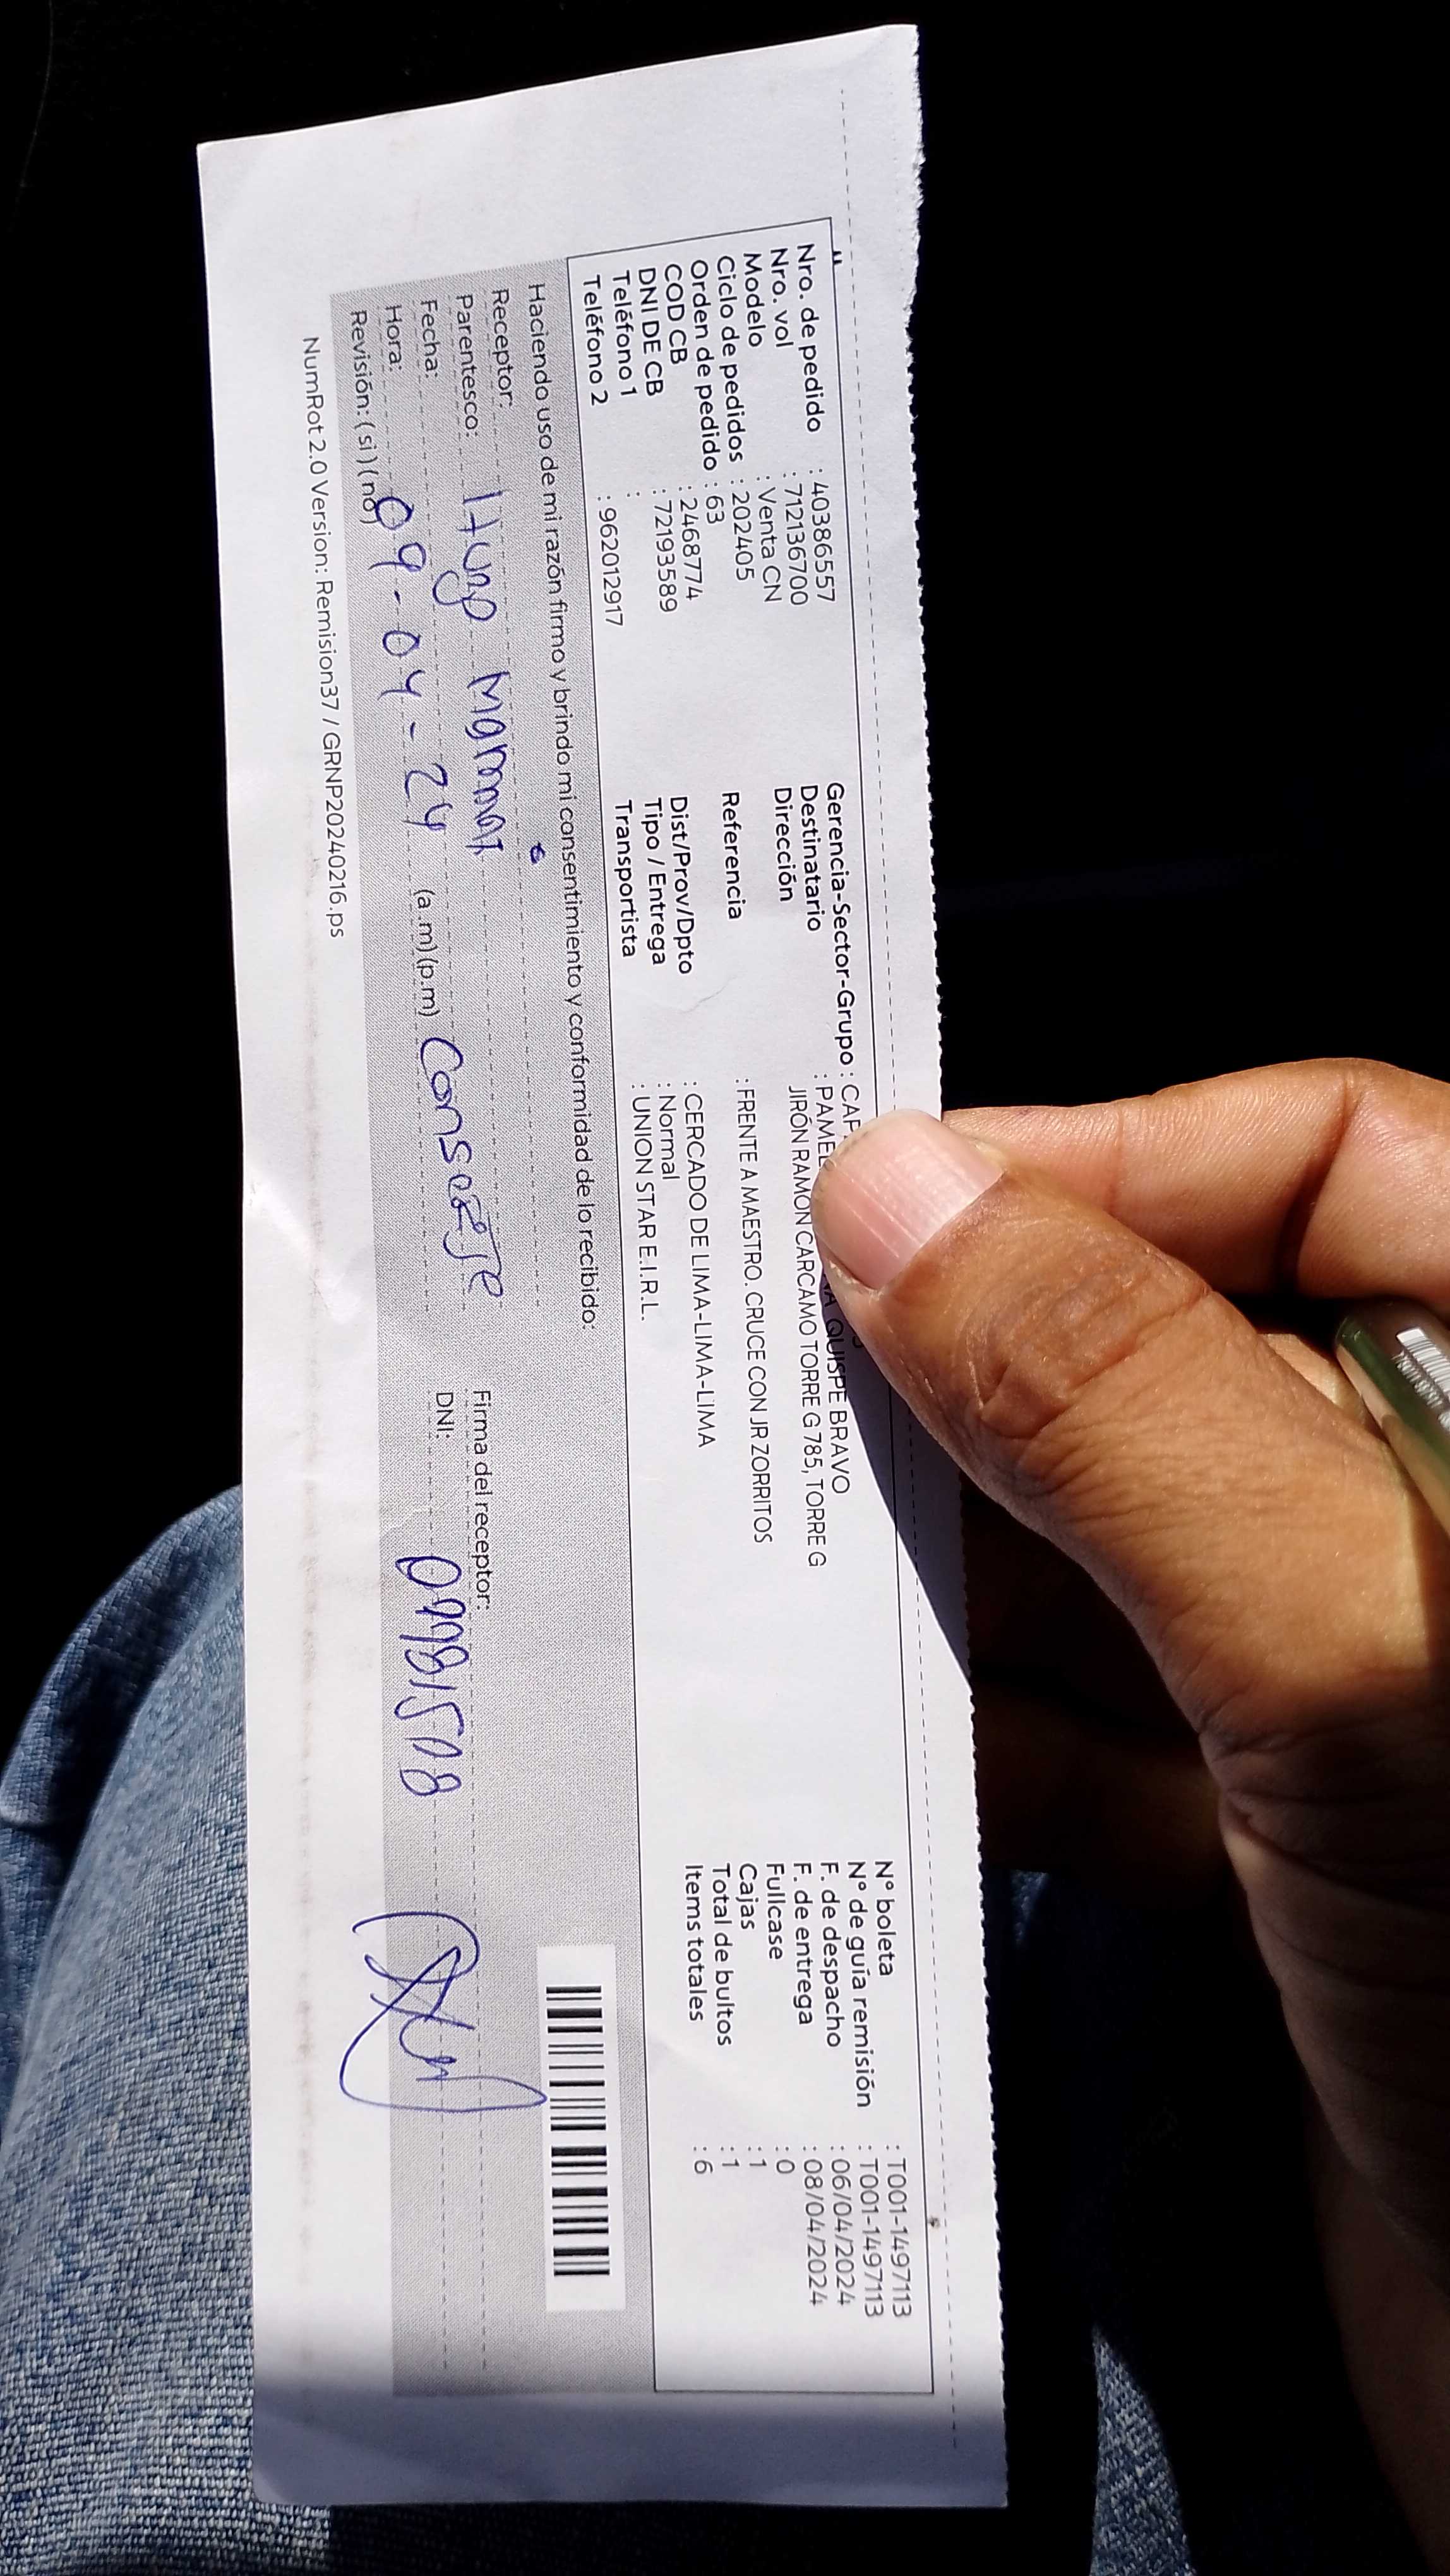 Nro. de pedido : 40386557
Nro. vol : 712136700
Modelo : Venta CN
Ciclo de pedidos : 202405
Orden de pedido : 63
COD CB : 2468774
DNI DE CB : 72193589
Teléfono 1 :
Teléfono 2 : 962012917
Gerencia-Sector-Grupo :
Destinatario : QUISPE BRAVO
Dirección JIRÓN RAMON CARCAMO TORRE G 785, TORRE G
Referencia : FRENTE A MAESTRO. CRUCE CON JR ZORRITOS
Dist/Prov/Dpto : CERCADO DE LIMA-LIMA-LIMA
Tipo / Entrega : Normal
Transportista : UNION STAR E.I.R.L.
N° boleta : T001-1497113
N° de guía remisión : T001-1497113
F. de despacho : 06/04/2024
F. de entrega : 08/04/2024
Fullcase : 0
Cajas : 1
Total de bultos : 1
Items totales : 6
Haciendo uso de mi razón firmo y brindo mi consentimiento y conformidad de lo recibido:
Receptor:
Parentesco: Hugo Mamani
Fecha:
Hora: 09-04-24 (a.m)(p.m) Conserje
Revisión: (si)(no)
Firma del receptor:
DNI: 09981508
NumRot 2.0 Version: Remision37 / GRNP20240216.ps